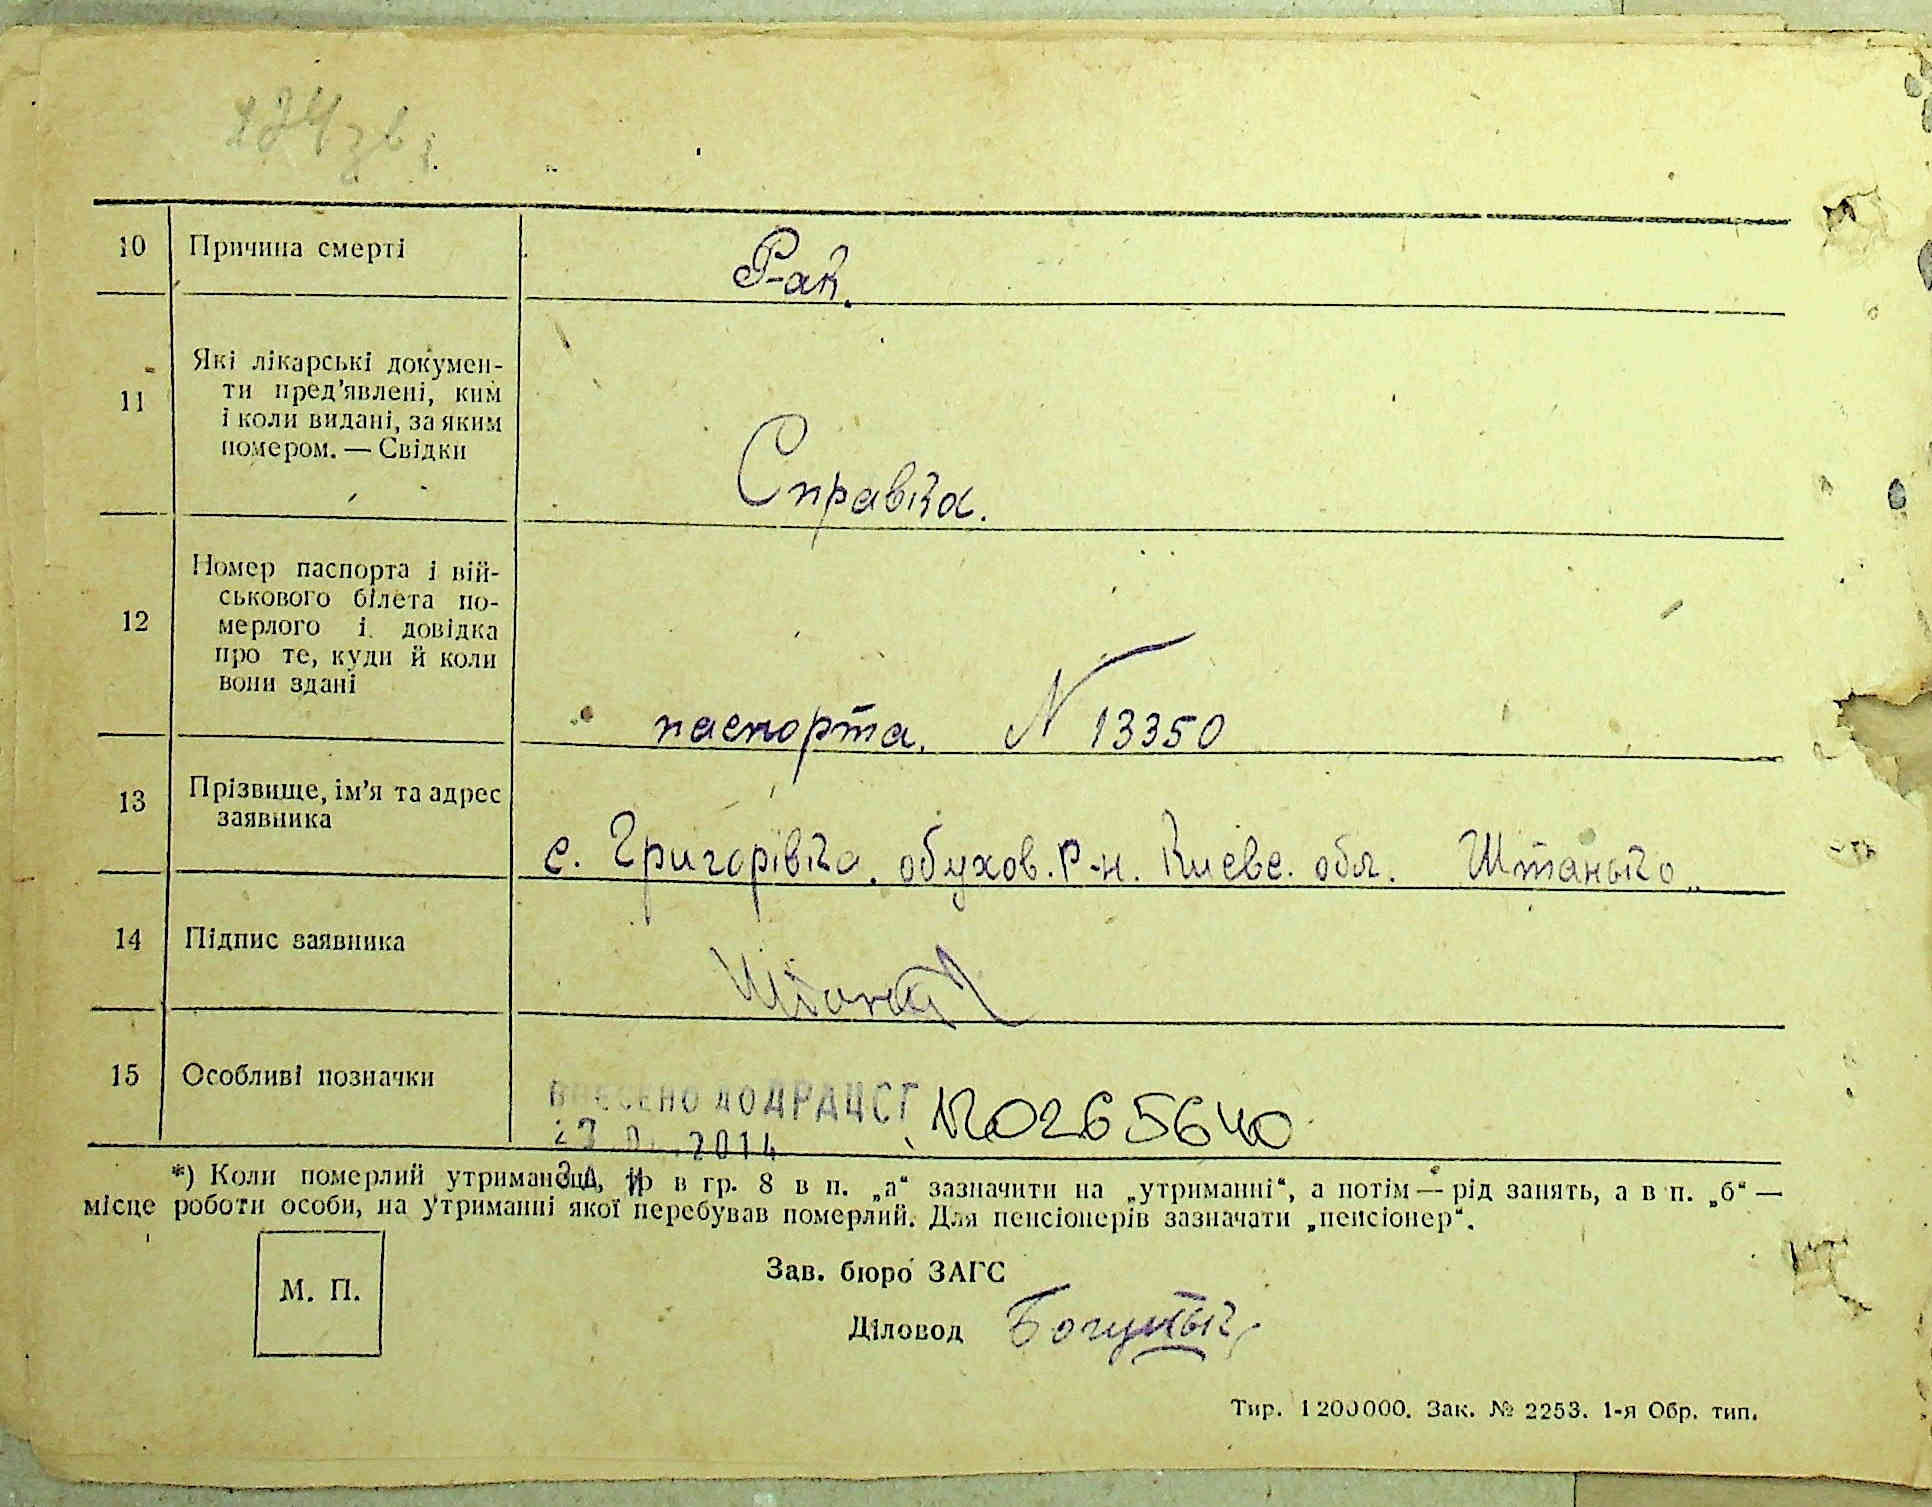 124 зв.
10 Причина смерті Рак.
11 Які лікарські докумен-
ти пред'явлені, ким
і коли видані, за яким
номером. — Свідки
Справка.
12 Номер паспорта і вій-
ськового білета по-
мерлого і довідка
про те, куди й коли
вони здані
паспорта. N 13350
13 Прізвище, ім'я та адрес
заявника
с. Григорівка. обухов. р-н. Києвс. обл. Штанько
14 Підпис заявника
15 Особливі позначки
ВНЕСЕНО ДО ДРАЦСГ №0265640
2014
*) Коли померлий утриманець, то в гр. 8 в п. „а“ зазначити на „утриманні“, а потім — рід занять, а в п. „б“ —
місце роботи особи, на утриманні якої перебував померлий. Для пенсіонерів зазначати „пенсіонер“.
М. П.
Зав. бюро ЗАГС
Діловод
Тир. 1200000. Зак. № 2253. 1-я Обр. тип.